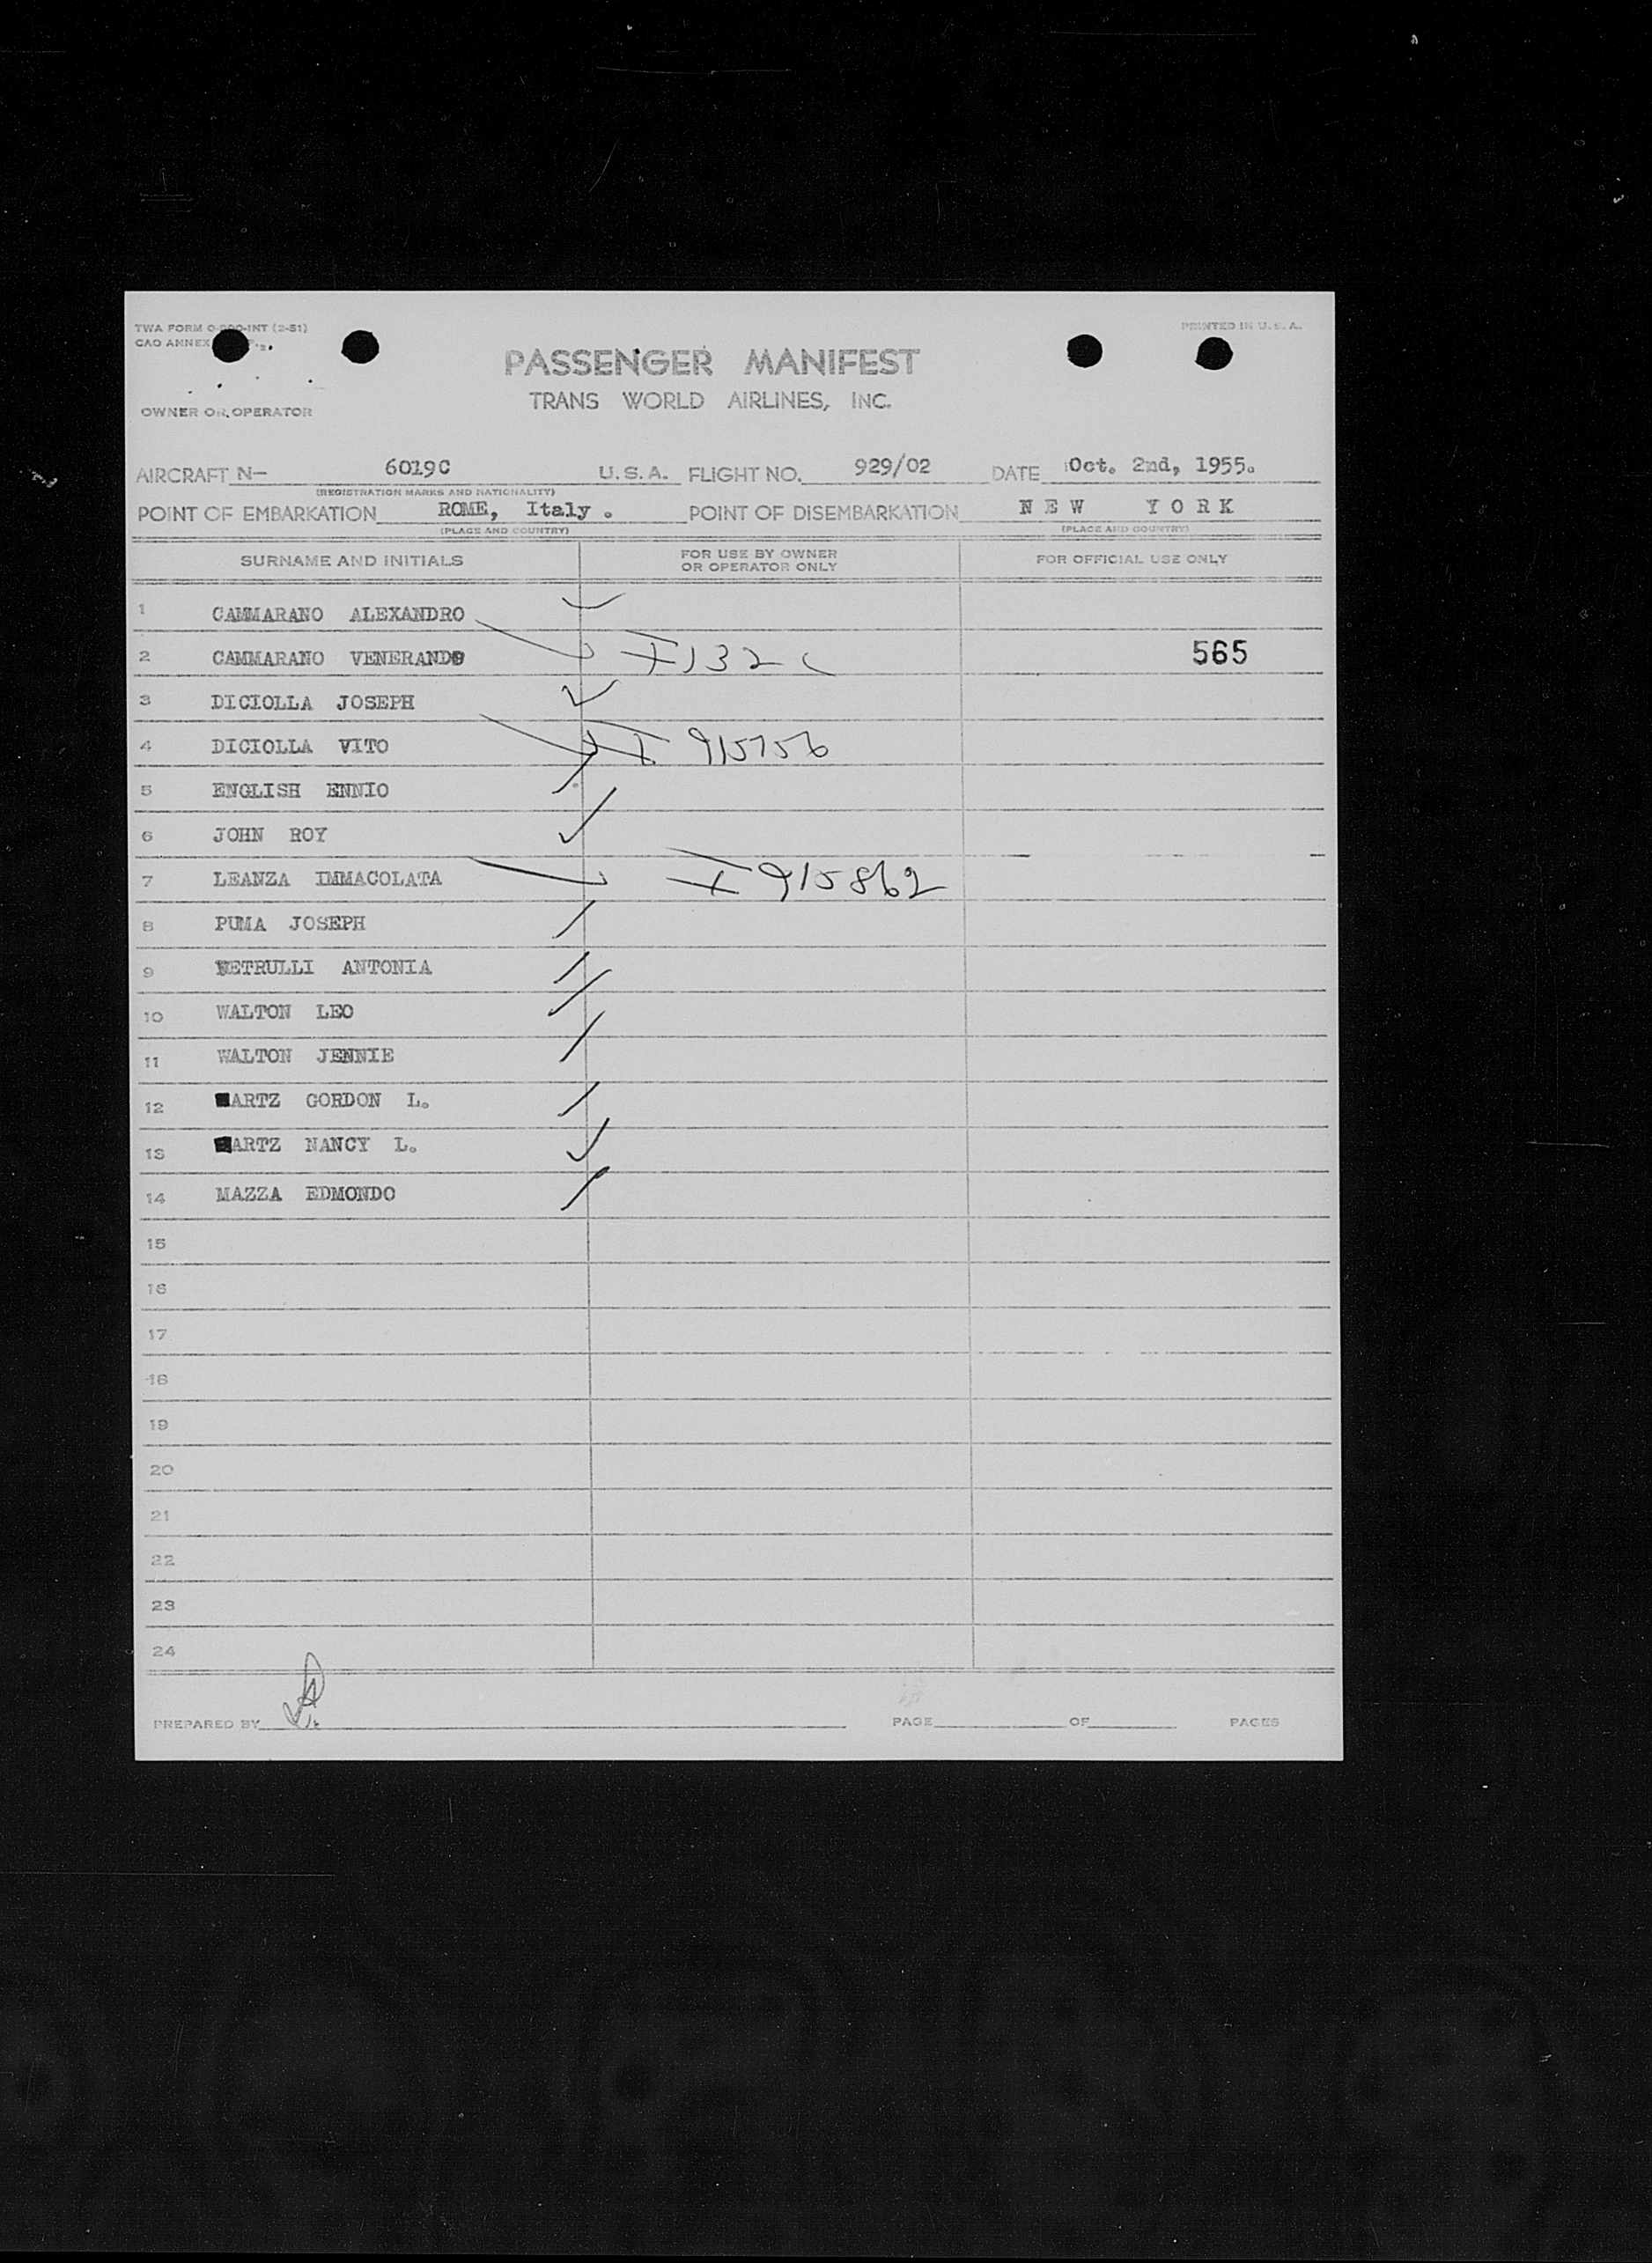 TWA FORM O- -INT (2-51)
PRINTED IN U.S.A.
CAO ANNEX
PASSENGER MANIFEST
TRANS WORLD AIRLINES, INC.
OWNER OR OPERATOR
AIRCRAFT N- 6019C U.S.A. FLIGHT NO. 929/02 DATE Oct. 2nd, 1955.
(REGISTRATION MARKS AND NATIONALITY)
POINT OF EMBARKATION ROME, Italy . POINT OF DISEMBARKATION NEW YORK
(PLACE AND COUNTRY) (PLACE AND COUNTRY)
SURNAME AND INITIALS FOR USE BY OWNER OR OPERATOR ONLY FOR OFFICIAL USE ONLY
1 CAMMARANO ALEXANDRO
2 CAMMARANO VENERANDO I 132 565
3 DICIOLLA JOSEPH
4 DICIOLLA VITO I 915756
5 ENGLISH ENNIO
6 JOHN ROY
7 LEANZA IMMACOLATA I 915862
8 PUMA JOSEPH
9 NETRULLI ANTONIA
10 WALTON LEO
11 WALTON JENNIE
12 ARTZ GORDON L.
13 ARTZ NANCY L.
14 MAZZA EDMONDO
15
16
17
18
19
20
21
22
23
24
PREPARED BY PAGE OF PAGES